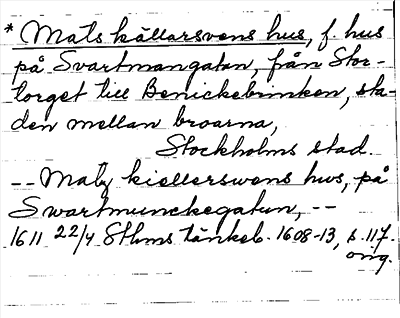 * Mats källarsvens hus, f. hus
på Svartmangatan, från Stor-
torget till Benickebrinken, sta-
den mellan broarna,
Stockholms stad.
-- Matz kiellerswens hws, på
Swartmunckegatun, --
1611 22/4 Sthms tänkeb. 1608-13, s. 117.
orig.